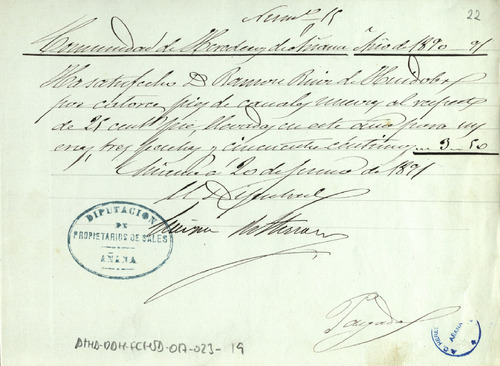 22
Num.º 15
Comunidad de Herederos de Añana Año de 1890-91
Ha satisfecho D. Ramon Ruiz de Huidobro
por catorce pies de canal nueva al respecto
de 25 cent. pie, llevada en este año para su
era, tres pesetas y cincuenta céntimos 3-50
Añana a 20 de Junio de 1891
El Diputado
DIPUTACION
DE
PROPIETARIOS DE SALES
AÑANA
Pagado
19